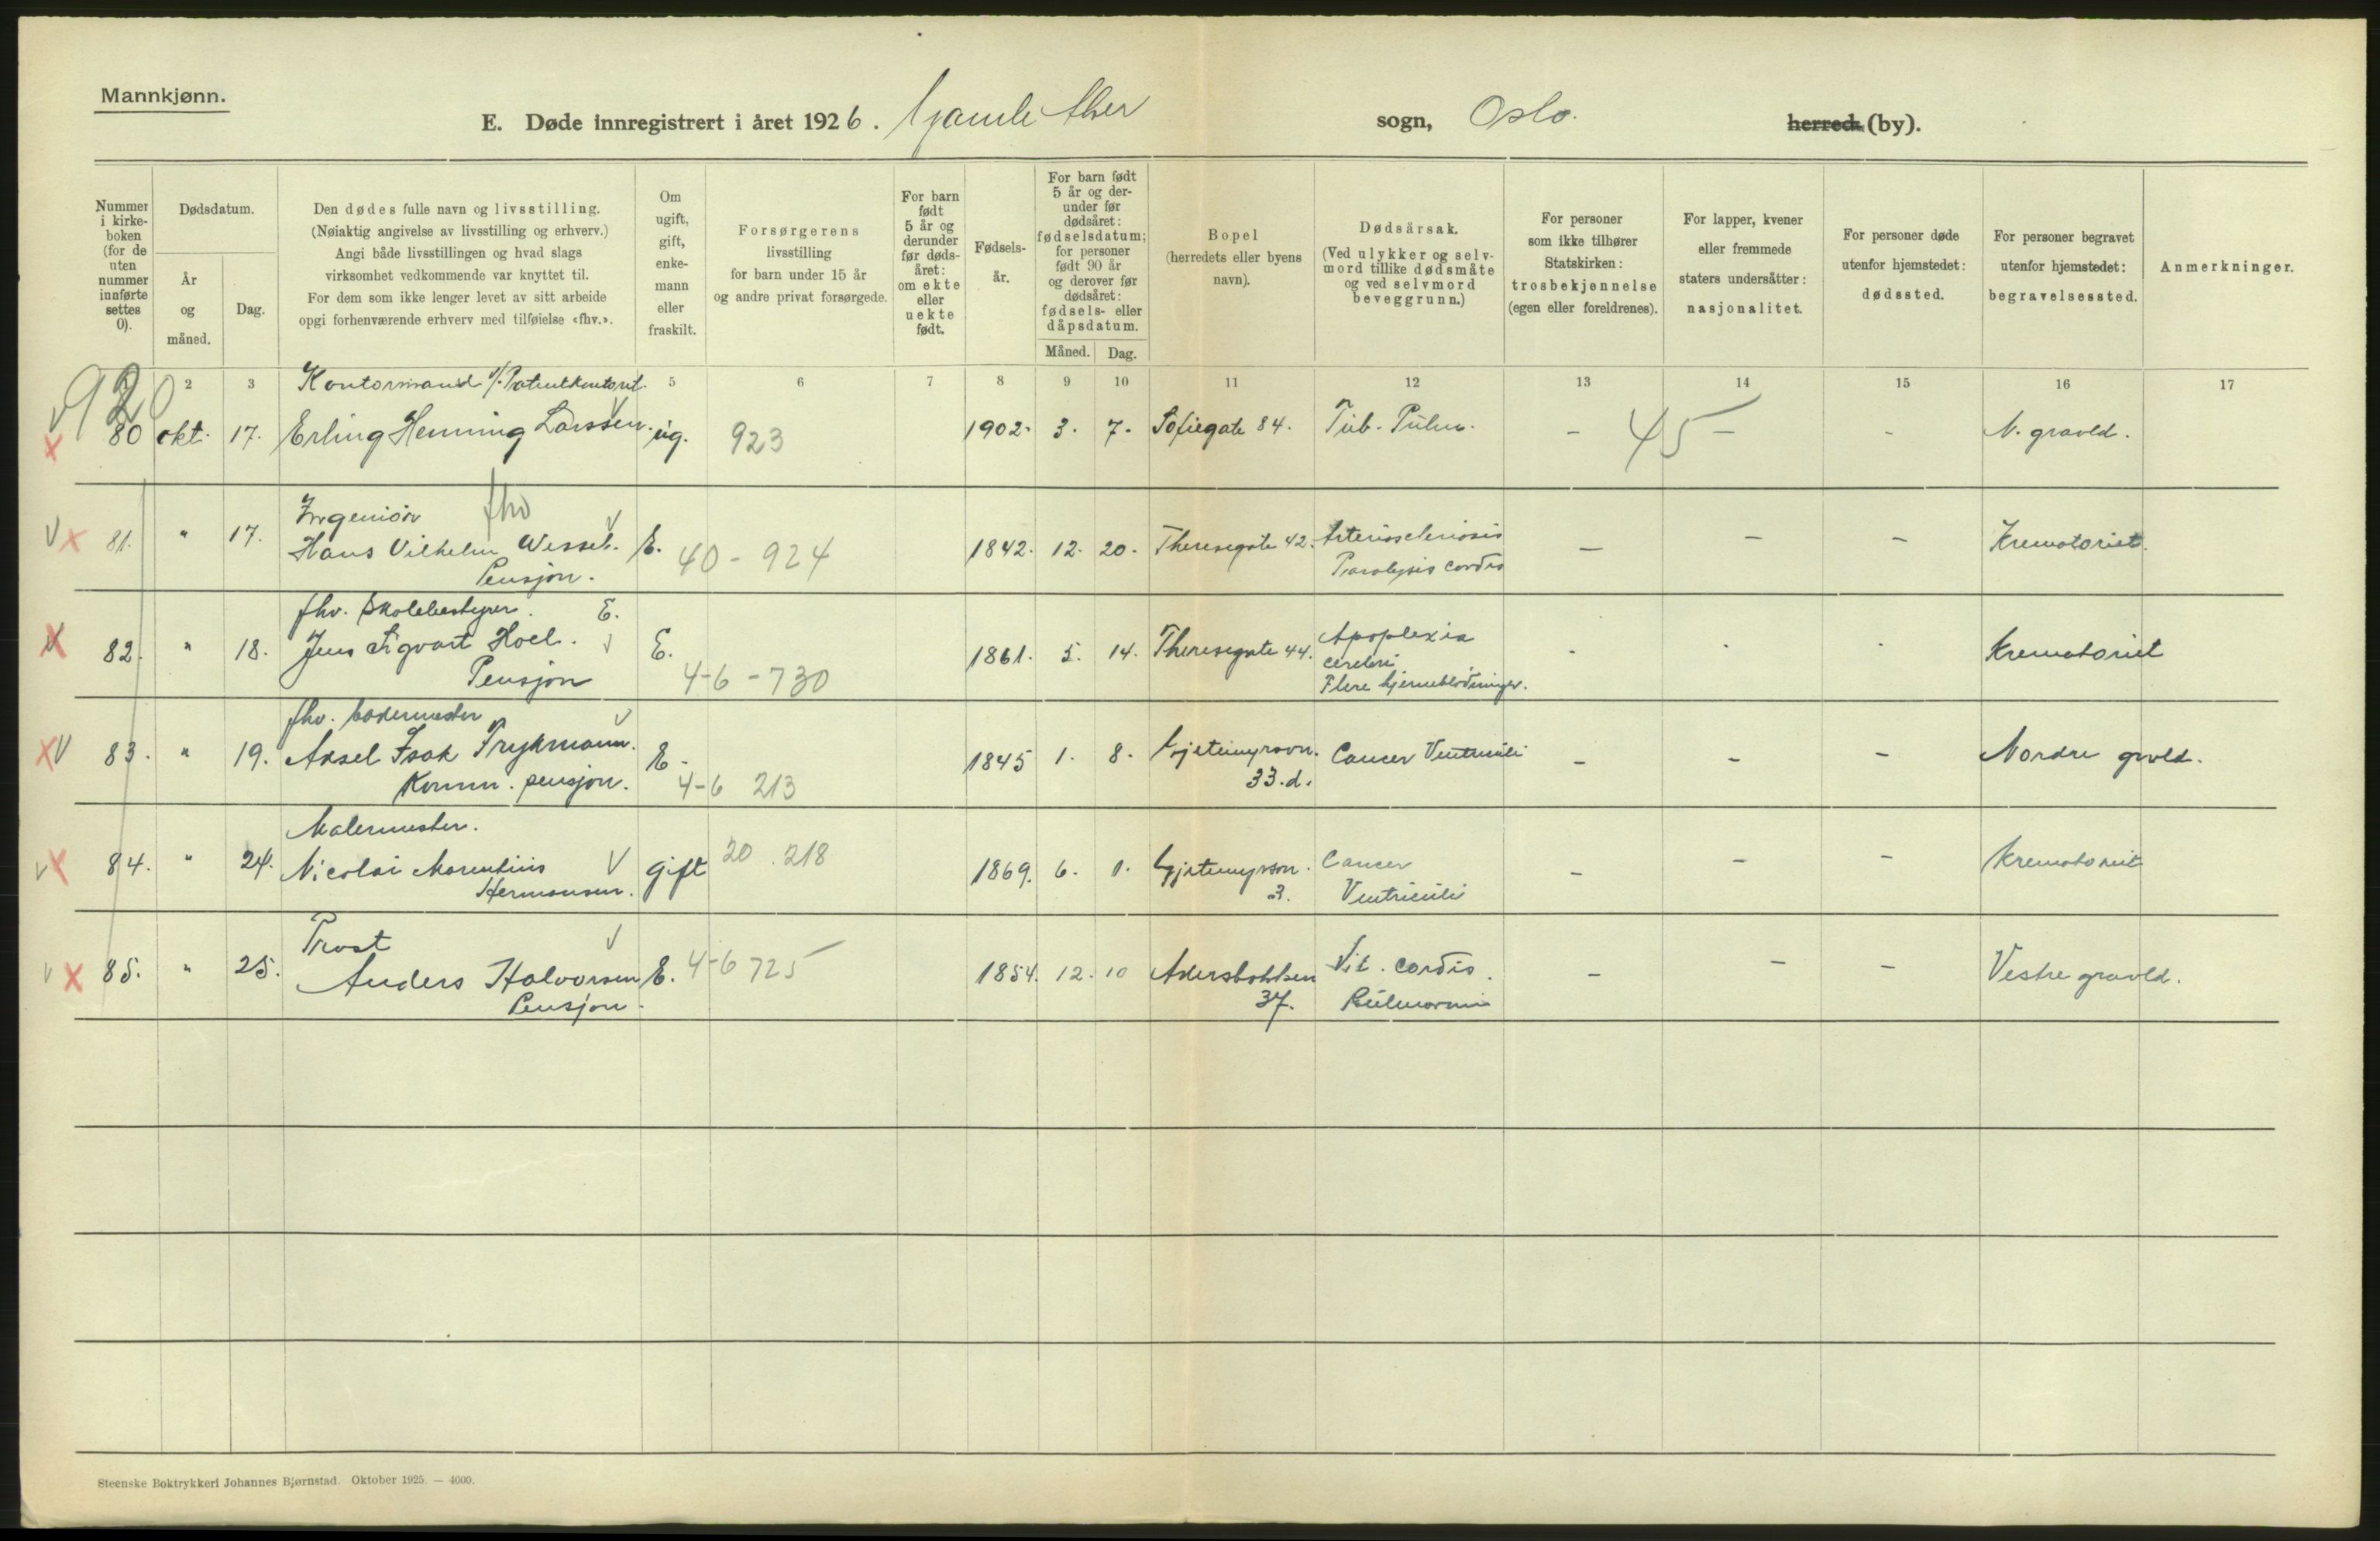 Mannkjønn.
E. Døde innregistrert i året 1926. Gamle Aker sogn, Oslo. herred (by).
Nummer i kirke-boken (for de uten nummer innførte settes 0).
Dødsdatum.
År og måned.
Dag.
Den dødes fulle navn og livsstilling.
(Nøiaktig angivelse av livsstilling og erhverv.)
Angi både livsstillingen og hvad slags
virksomhet vedkommende var knyttet til.
For dem som ikke lenger levet av sitt arbeide
opgi forhenværende erhverv med tilføielse «fhv.».
Om ugift, gift, enke-mann eller fraskilt.
Forsørgerens
livsstilling
for barn under 15 år
og andre privat forsørgede.
For barn født 5 år og derunder før døds-året: om ekte eller uekte født.
Fødsels-år.
For barn født 5 år og der-under før dødsåret: fødselsdatum; for personer født 90 år og derover før dødsåret: fødsels- eller dåpsdatum.
Måned. Dag.
Bopel
(herredets eller byens
navn).
Dødsårsak.
(Ved ulykker og selv-
mord tillike dødsmåte
og ved selvmord
beveggrunn.)
For personer
som ikke tilhører
Statskirken:
trosbekjennelse
(egen eller foreldrenes).
For lapper, kvener
eller fremmede
staters undersåtter:
nasjonalitet.
For personer døde
utenfor hjemstedet:
dødssted.
For personer begravet
utenfor hjemstedet:
begravelsessted.
Anmerkninger.
2 3 5 6 7 8 9 10 11 12 13 14 15 16 17
920
Kontormand v/. Patentkontoret.
80 okt. 17. Erling Henning Larssen. ug. 923 1902. 3. 7. Sofiegate 84. Tub. Pulm. - 45 - - N. gravld.
Ingeniør fhv
81. " 17. Hans Vilhelm Wessel. E. 40 - 924 1842. 12. 20. Theresegate 42. Arterioscleriosis - - - Krematoriet.
Pensjon. Paralysis cordis
fhv. Skolebestyrer. E.
82. " 18. Jens Sigvart Hoel. E. 4-6 - 730 1861. 5. 14. Theresegate 44. Apoplexia - - - Krematoriet
cerebri.
Pensjon Flere hjerneblødninger.
fhv. bademester
83. " 19. Aksel Isak Trykmann. E. 4-6 213 1845 1. 8. Gjetemyrsvn. Cancer Ventriculi - - - Nordre gravld.
Komm. pensjon. 33.d.
Malermester.
84. " 24. Nicolai Marentius gift 20 . 218 1869. 6. 1. Gjetemyrsvn. Cancer - - - Krematoriet
Hermansen. 3. Ventriculi
Prost
85. " 25. Anders Halvorsen E. 4-6 725 1854. 12. 10 Akersbakken Vit. cordis. - - - Vestre gravld.
Pensjon. 37.
Steenske Boktrykkeri Johannes Bjørnstad. Oktober 1925. — 4000.